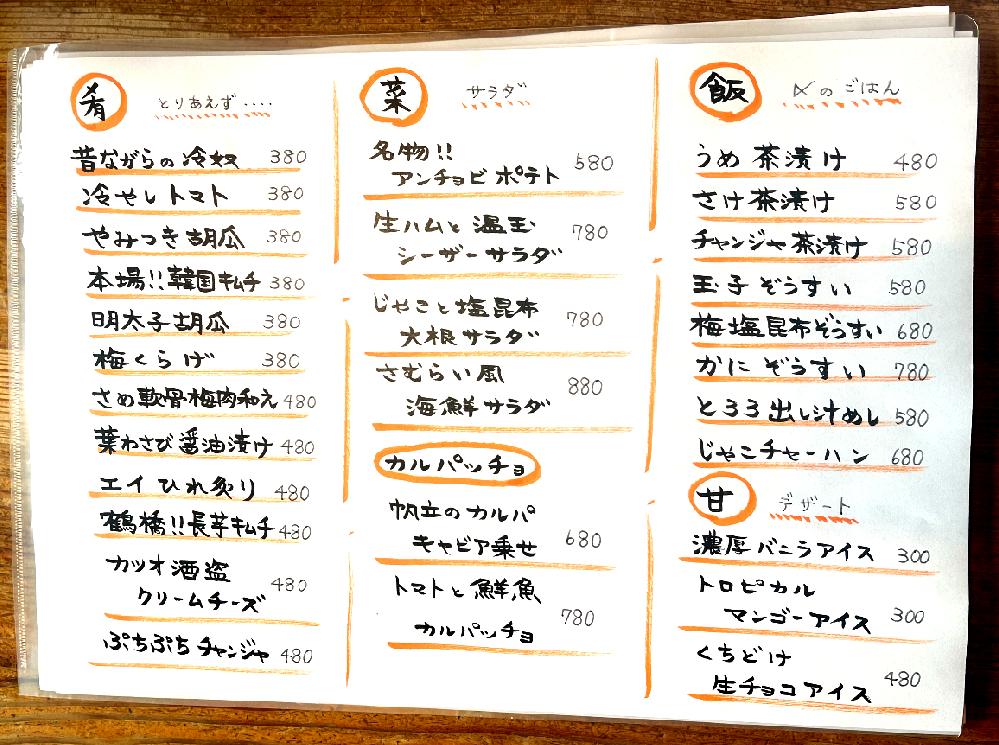 肴 とりあえず‥‥
昔ながらの冷奴 380
冷やしトマト 380
やみつき胡瓜 380
本場!!韓国キムチ 380
明太子胡瓜 380
梅くらげ 380
さめ軟骨梅肉和え 480
葉わさび醤油漬け 480
エイひれ炙り 480
鶴橋!!長芋キムチ 480
カツオ酒盗
クリームチーズ 480
ぷちぷちチャンジャ 480
菜 サラダ
名物!!
アンチョビポテト 580
生ハムと温玉
シーザーサラダ 780
じゃこと塩昆布
大根サラダ 780
さむらい風
海鮮サラダ 880
カルパッチョ
帆立のカルパ
キャビア乗せ 680
トマトと鮮魚
カルパッチョ 780
飯 〆のごはん
うめ茶漬け 480
さけ茶漬け 580
チャンジャ茶漬け 580
玉子ぞうすい 580
梅塩昆布ぞうすい 680
かにぞうすい 780
とろろ出し汁めし 580
じゃこチャーハン 680
甘 デザート
濃厚バニラアイス 300
トロピカル
マンゴーアイス 300
くちどけ
生チョコアイス 480